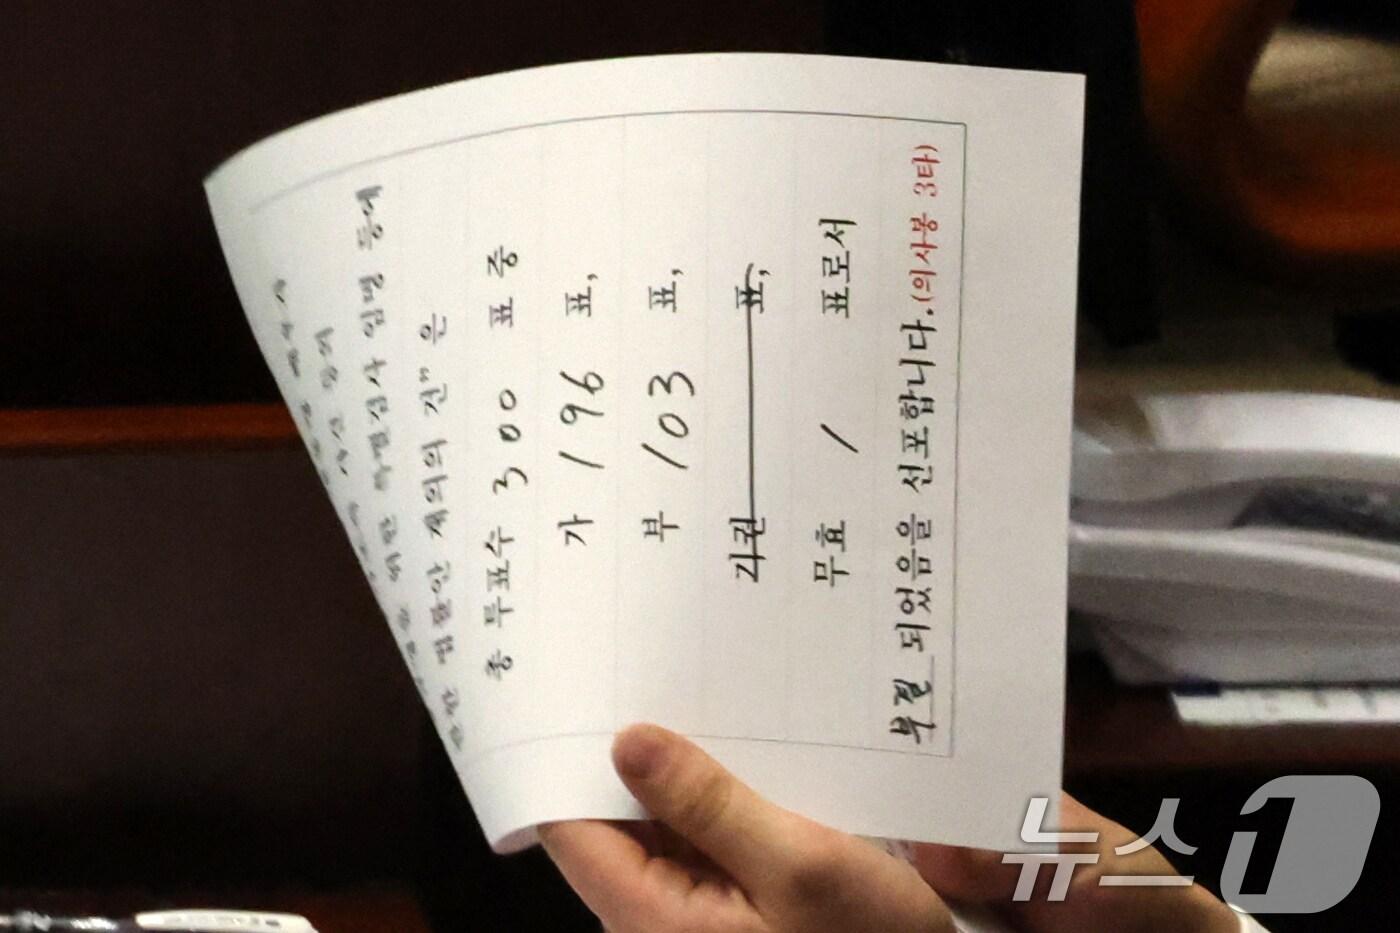 특별검사 임명 등에
관한 법률안 재의의 건" 은
총 투표수 300 표 중
가 196 표,
부 103 표,
기권 표,
무효 1 표로서
부결 되었음을 선포합니다.(의사봉 3타)
뉴스1